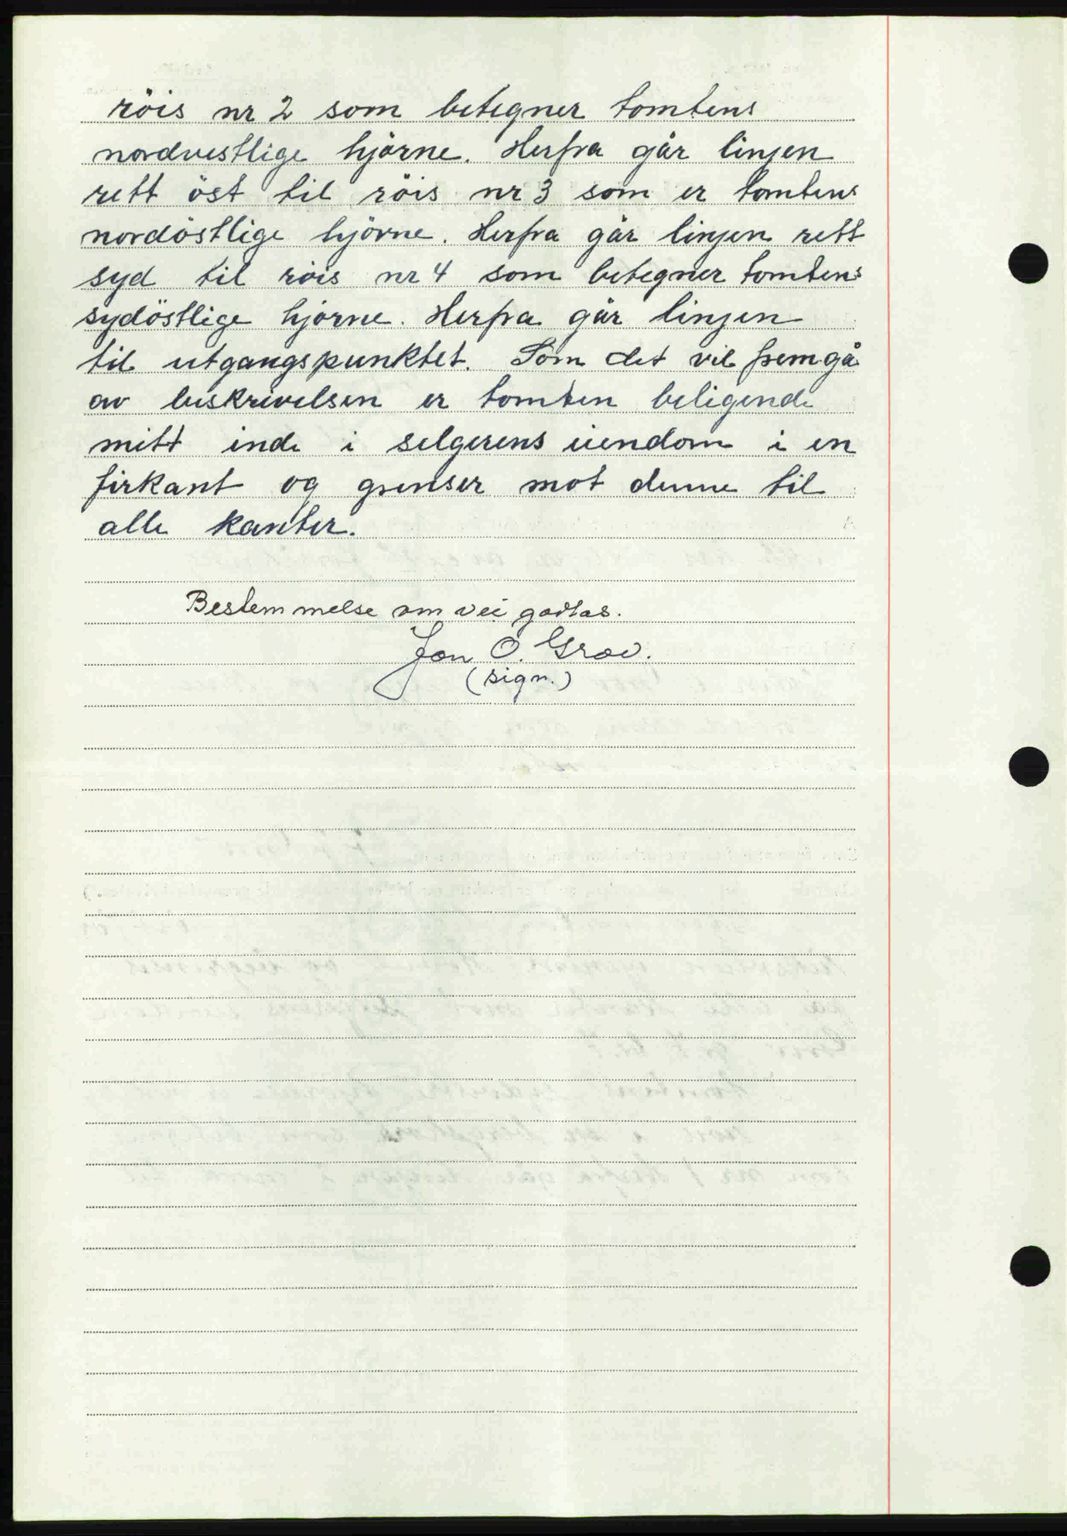 röis nr 2 som betegner tomtens
nordvestlige hjörne. Herfra går linjen
rett öst til röis nr 3 som er tomtens
nordöstlige hjörne. Herfra går linjen rett
syd til röis nr 4 som betegner tomtens
sydöstlige hjörne. Herfra går linjen
til utgangspunktet. Som det vil fremgå
av beskrivelsen er tomten beligende
mitt inde i selgerens eiendom i en
firkant og grenser mot denne til
alle kanter.
Bestemmelse om vei godtas.
Jon O. Grov.
(sign.)